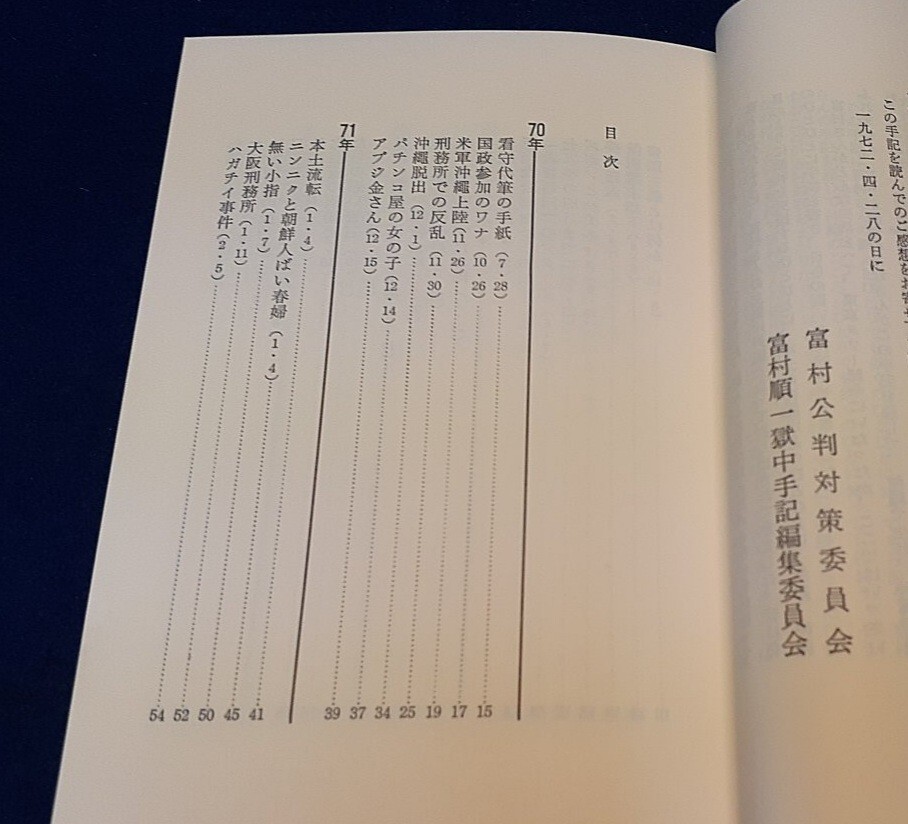 この手記を読んでのご感想をお寄せ
一九七二・四・二八の日に
富村公判対策委員会
富村順一獄中手記編集委員会
目次
70年
看守代筆の手紙(7・28)……15
国政参加のワナ(10・26)……17
米軍沖縄上陸(11・26)……19
刑務所での反乱(11・30)……25
沖縄脱出(12・1)……34
パチンコ屋の女の子(12・14)……37
アブジ金さん(12・15)……39
71年
本土流転(1・4)……41
ニンニクと朝鮮人ばい春婦(1・4)……45
無い小指(1・7)……50
大阪刑務所(1・11)……52
ハガチイ事件(2・5)……54